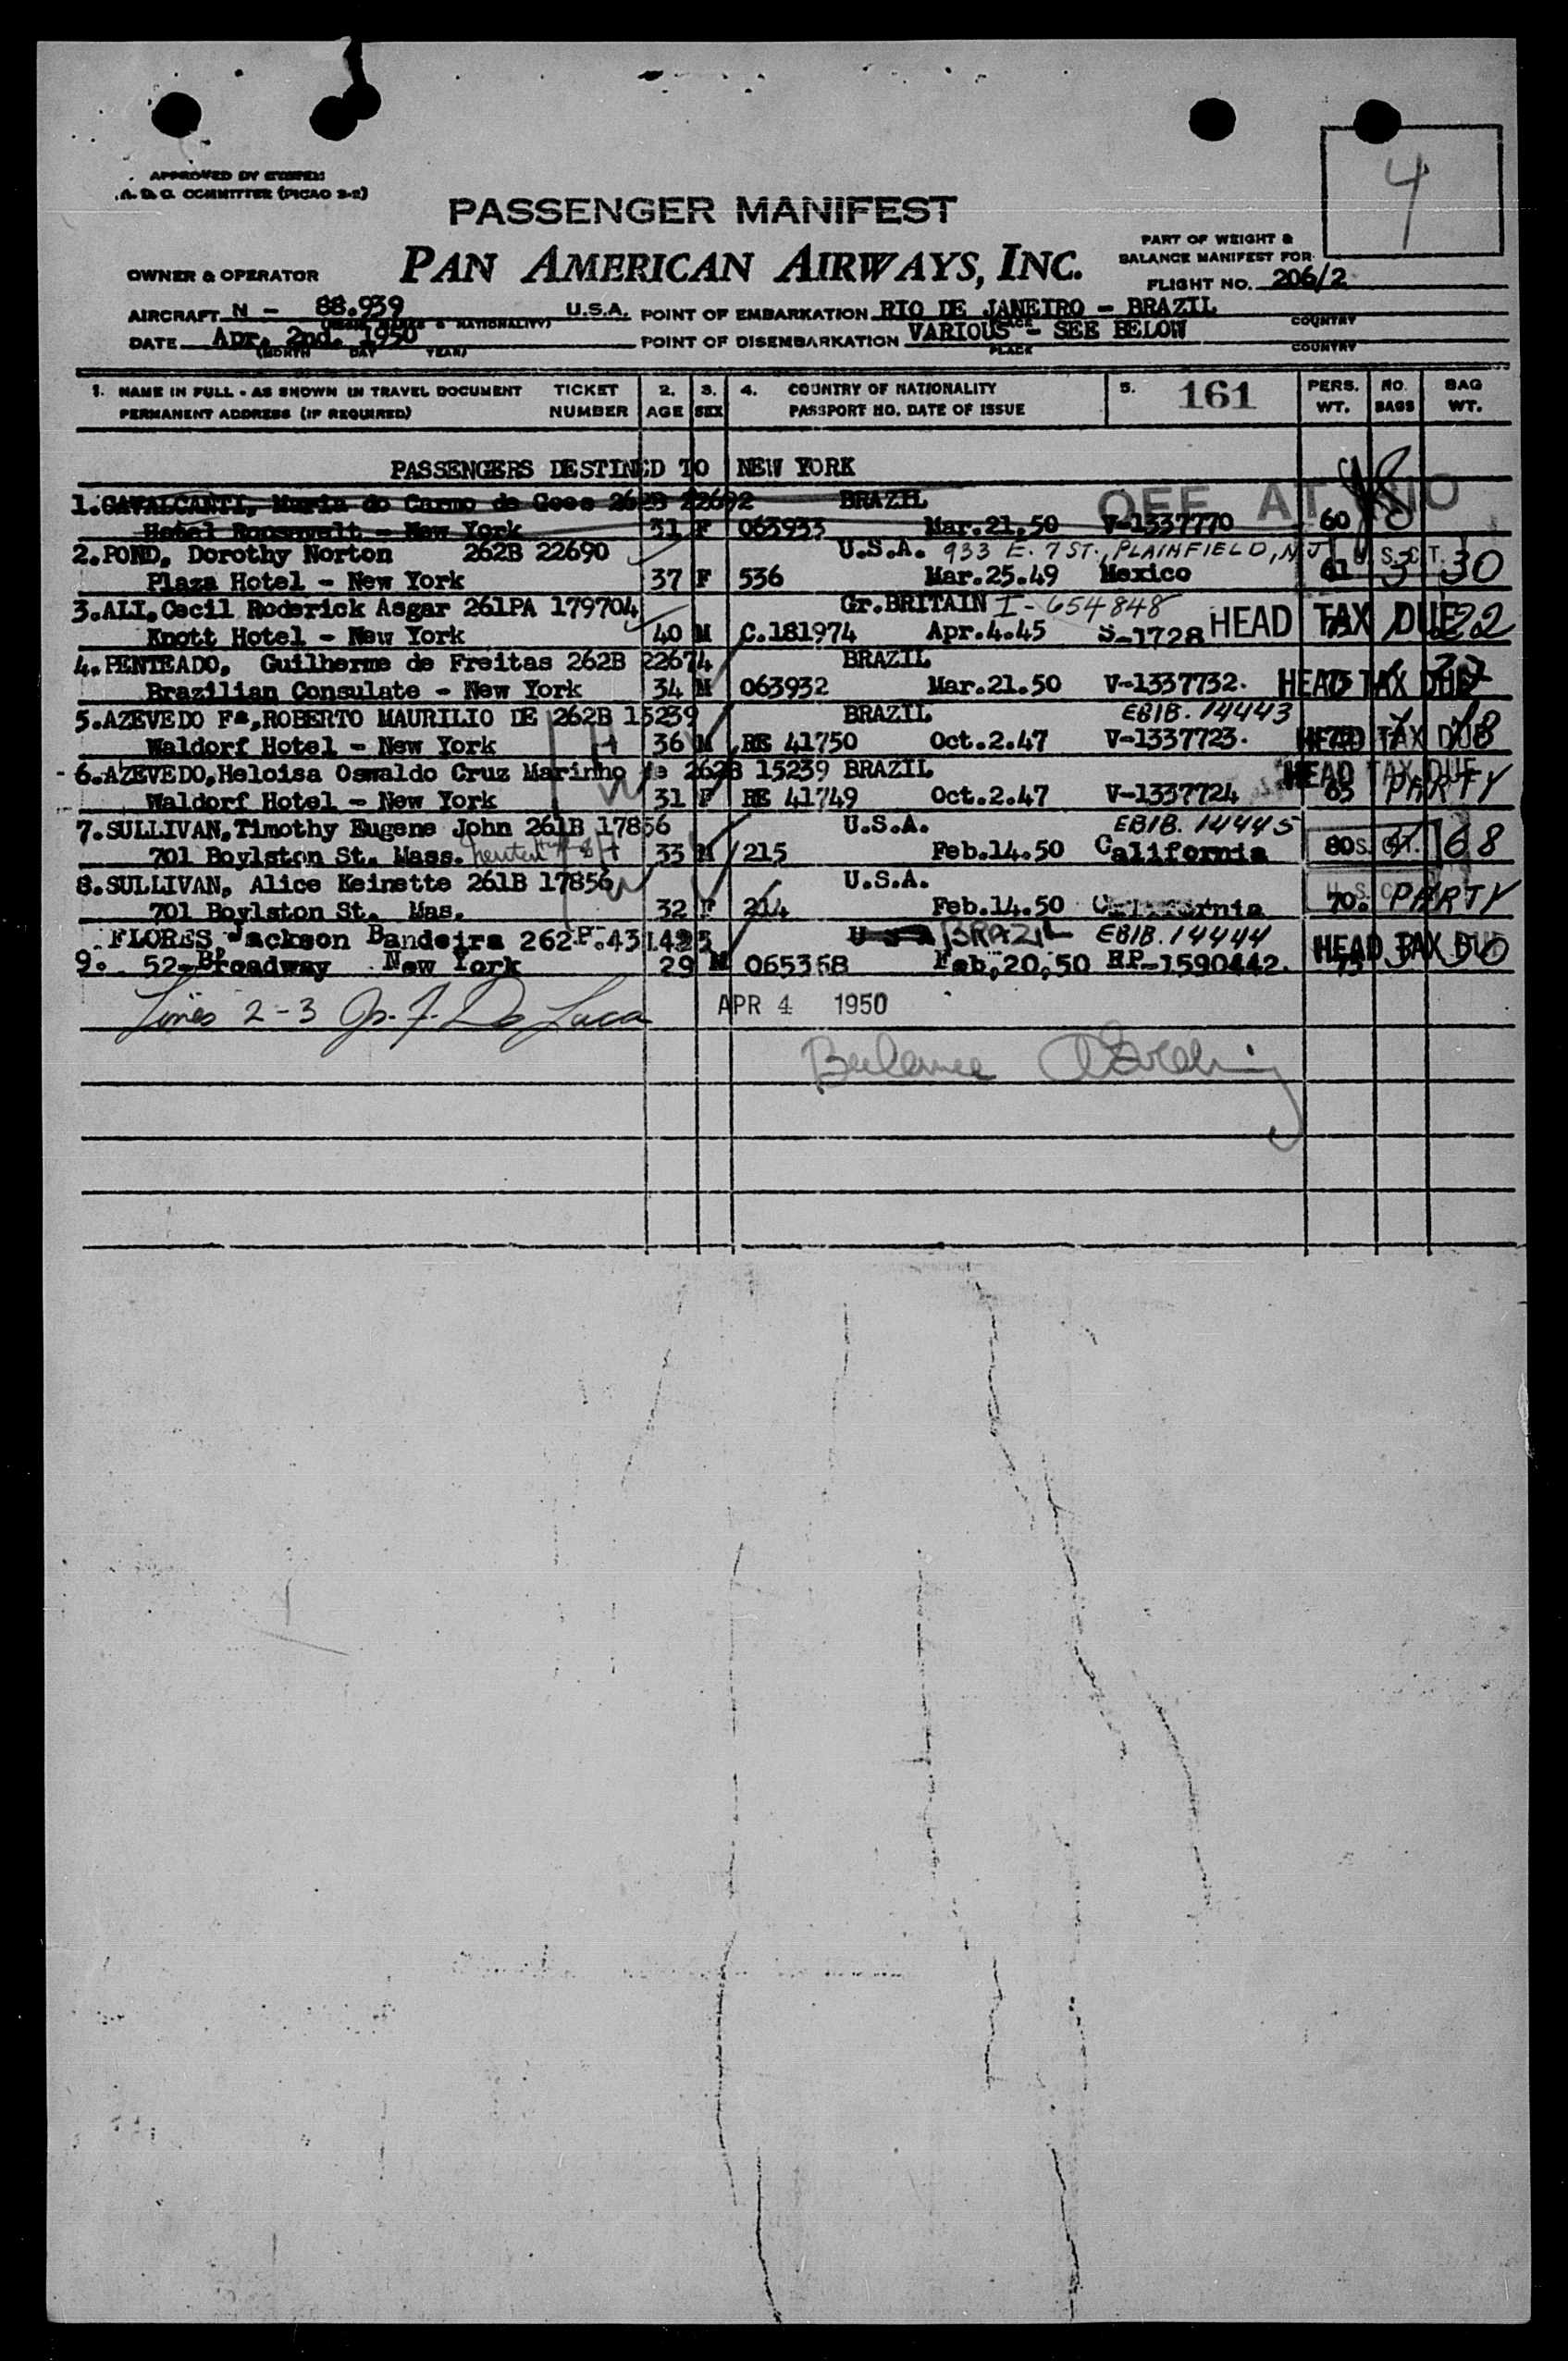 APPROVED BY SYSTEM
A. D. C. COMMITTEE (PICAO 2-2)
4
PASSENGER MANIFEST
PAN AMERICAN AIRWAYS, INC.
PART OF WEIGHT &
BALANCE MANIFEST FOR
OWNER & OPERATOR
FLIGHT NO. 206/2
AIRCRAFT N - 88.939 U.S.A. POINT OF EMBARKATION RIO DE JANEIRO - BRAZIL
COUNTRY
DATE Apr. 2nd. 1950 POINT OF DISEMBARKATION VARIOUS - SEE BELOW
(MONTH DAY YEAR) PLACE COUNTRY
1. NAME IN FULL - AS SHOWN IN TRAVEL DOCUMENT TICKET 2. 3. 4. COUNTRY OF NATIONALITY 5. 161 PERS. NO. BAG
PERMANENT ADDRESS (IF REQUIRED) NUMBER AGE SEX PASSPORT NO. DATE OF ISSUE WT. BAGS WT.
PASSENGERS DESTINED TO NEW YORK
1. CAVALCANTI, Maria do Carmo de Goes 262B 22692 BRAZIL OFF AT
Hotel Roosevelt - New York 31 F 063933 Mar.21,50 V-1337770 60
2. POND, Dorothy Norton 262B 22690 U.S.A. 933 E. 7 ST., PLAINFIELD, N J U. S. C. T.
Plaza Hotel - New York 37 F 536 Mar.25.49 Mexico 61 3 30
3. ALI, Cecil Roderick Asgar 261PA 179704 Gr.BRITAIN I-654848
Knott Hotel - New York 40 M C.181974 Apr.4.45 S-1728 HEAD TAX DUE 1 22
4. PENTEADO, Guilherme de Freitas 262B 22674 BRAZIL
Brazilian Consulate - New York 34 M 063932 Mar.21.50 V-1337732. HEAD TAX DUE
5. AZEVEDO Fº, ROBERTO MAURILIO DE 262B 15239 BRAZIL EBIB. 14443
Waldorf Hotel - New York 36 M RE 41750 Oct.2.47 V-1337723. HEAD TAX DUE
- 6. AZEVEDO, Heloisa Oswaldo Cruz Marinho de 262B 15239 BRAZIL HEAD TAX DUE
Waldorf Hotel - New York 31 F RE 41749 Oct.2.47 V-1337724 65 PARTY
7. SULLIVAN, Timothy Eugene John 261B 17856 U.S.A. EBIB. 14445
701 Boylston St. Mass. 33 M 215 Feb.14.50 California 80 68
8. SULLIVAN, Alice Keinette 261B 17856 U.S.A.
701 Boylston St. Mas. 32 F 214 Feb.14.50 California 70. PARTY
FLORES, Jackson Bandeira 262.P. U S A BRAZIL EBIB. 14444
9. 52-Broadway New York 29 M 065368 Feb,20,50 RP-1590442. HEAD TAX DUE 75
Lines 2-3 Jos. F. De Luca APR 4 1950